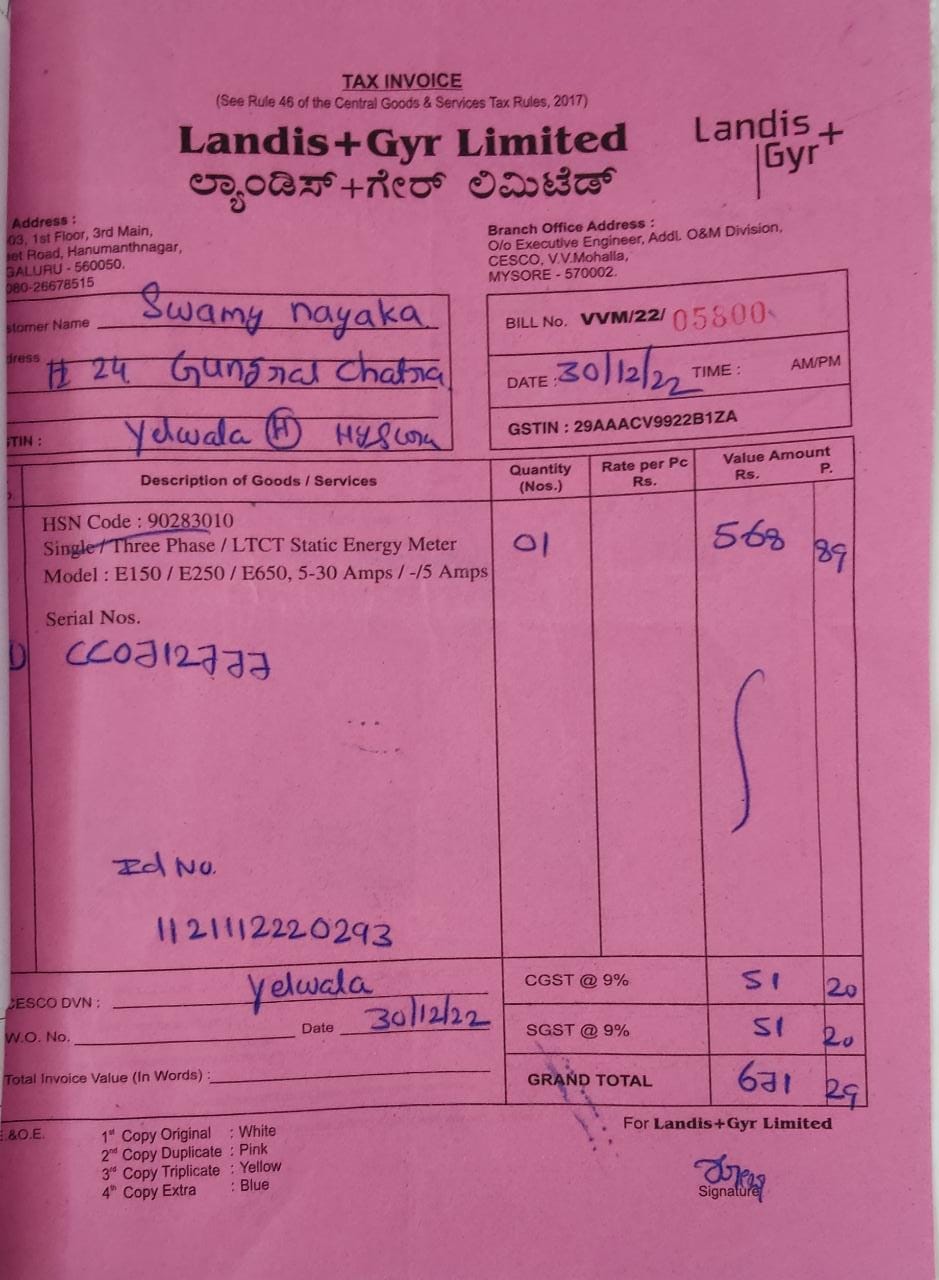 TAX INVOICE
(See Rule 46 of the Central Goods & Services Tax Rules, 2017)
Landis+Gyr Limited
Landis+
Gyr
ಲ್ಯಾಂಡಿಸ್+ಗೇರ್ ಲಿಮಿಟೆಡ್
Address :
03, 1st Floor, 3rd Main,
et Road, Hanumanthnagar,
GALURU - 560050.
080-26678515
Branch Office Address :
O/o Executive Engineer, Addl. O&M Division,
CESCO, V.V.Mohalla,
MYSORE - 570002.
stomer Name Swamy nayaka
dress # 24 Gungral Chatra
Yelwala (H)
STIN :
BILL No. VVM/22/ 05800
DATE : 30/12/22 TIME : AM/PM
GSTIN : 29AAACV9922B1ZA
Description of Goods / Services Quantity (Nos.) Rate per Pc Rs. Value Amount Rs. P.
HSN Code : 90283010
Single / Three Phase / LTCT Static Energy Meter 01 568 89
Model : E150 / E250 / E650, 5-30 Amps / -/5 Amps
Serial Nos.
CC0712777
Id No.
11211122220293
CESCO DVN : Yelwala
W.O. No. Date 30/12/22
Total Invoice Value (In Words) :
CGST @ 9% 51 20
SGST @ 9% 51 20
GRAND TOTAL 671 29
E.&O.E.
1st Copy Original : White
2nd Copy Duplicate : Pink
3rd Copy Triplicate : Yellow
4th Copy Extra : Blue
For Landis+Gyr Limited
Signature